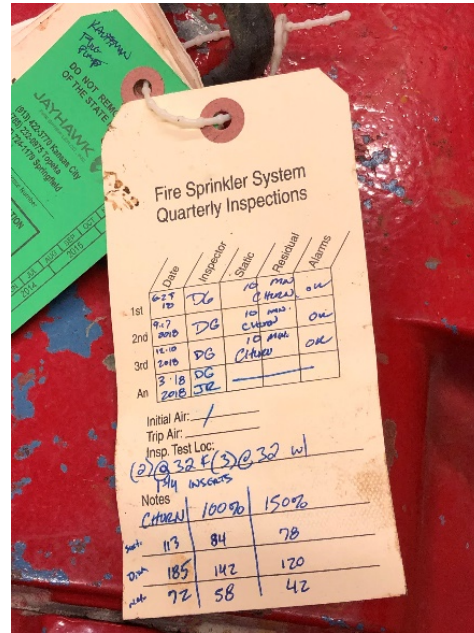 DO NOT REM
OF THE STATE
JAYHAWK
(913) 422-3770 Kansas City
232-0975 Topeka
1179 Springfield
AUG SEP OCT
2014 2015
Fire Sprinkler System
Quarterly Inspections
Date Inspector Static Residual Alarms
1st DG 10 MIN. CHURN OK
2nd 9-17 2018 DG 10 MIN. CHURN OK
3rd 12-10 2018 DG 10 MIN. CHURN OK
An 3-18 2018 DG JR
Initial Air:
Trip Air:
Insp. Test Loc:
(2) @ 32 & (3) @ 32 W/
1 3/4 INSERTS
Notes
CHURN 100% 150%
Suct. 113 84 78
Disch 185 142 120
Net 72 58 42